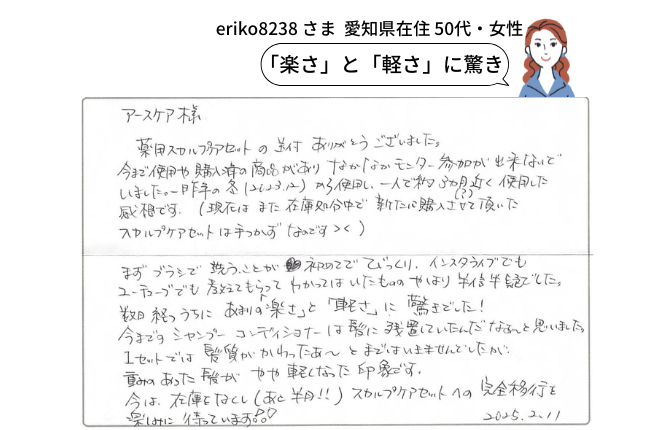 eriko8238 さま 愛知県在住 50代・女性
「楽さ」と「軽さ」に驚き
アースケア様
薬用スカルプケアセットの送付 ありがとうございました。
今まで使用や購入済の商品があり なかなかモニター参加が出来ないで
いました。一昨年の冬(2023.12)から使用し、一人で約3ヵ月近く使用した
(?)
感想です。(現在は また 在庫処分中で 新たに購入させて頂いた
スカルプケアセットは手つかず なのです><)
まずブラシで洗うことが 初めてでびっくり、インスタライブでも
ユーチューブでも教えてもらって わかってはいたものの やはり半信半疑でした。
数日経つうちに あまりの「楽さ」と「軽さ」に 驚きでした!
今まで シャンプー コンディショナーは髪に残置していたんだなぁ〜と思いました。
1セットでは髪質がかわったぁ〜とまではいきませんでしたが、
重みのあった髪が やや軽くなった印象です。
今は、在庫をなくし(あと半月!!)スカルプケアセットへの完全移行を
楽しみに待っています♡♡
2025.2.11